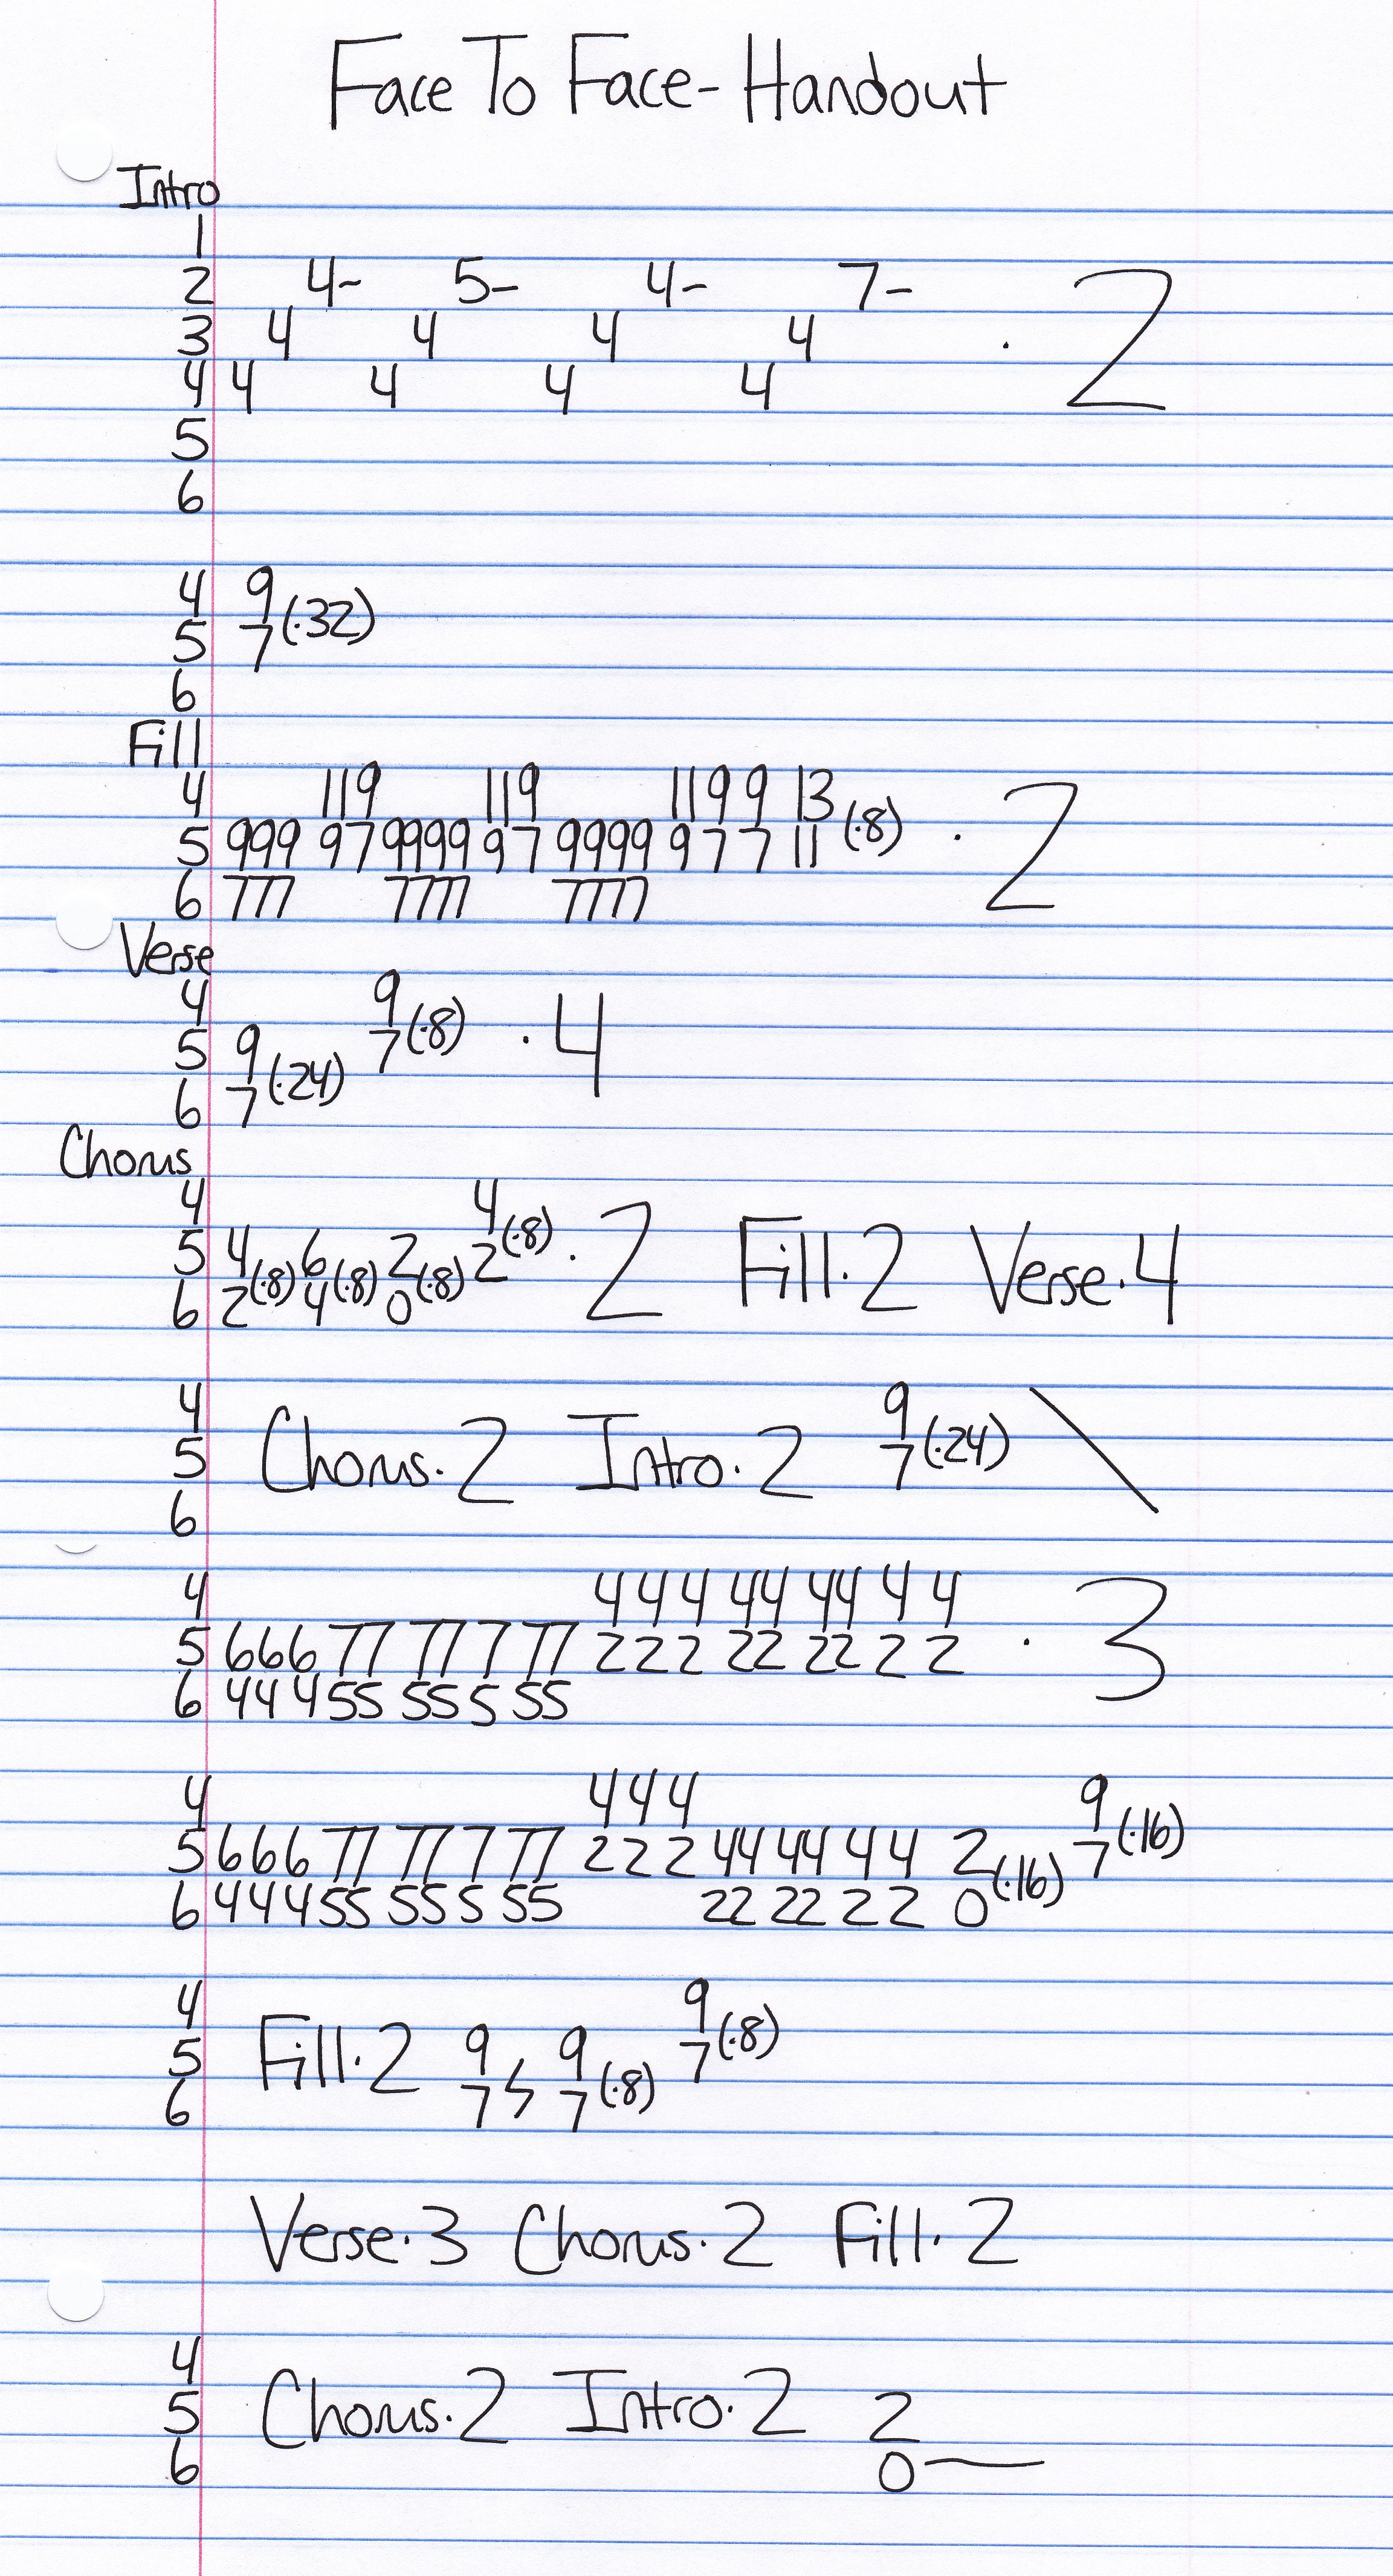 Face To Face - Handout
Intro
1
2 4- 5- 4- 7-
3 4 4 4 4 · 2
4 4 4 4 4
5
6
4 9
5 7 (·32)
6
Fill
4 119 119 119 9 13
5 999 97 9999 97 9999 97 7 11 (·8) · 2
6 777 7777 7777
Verse
4 9
5 9 7 (·8) · 4
6 7 (·24)
Chorus
4 4
5 4 6 2 2 (·8) · 2 Fill·2 Verse·4
6 2 (·8) 4 (·8) 0 (·8)
4 9
5 Chorus·2 Intro·2 7 (·24) \
6
4 4 4 4 44 44 4 4
5 666 77 77 7 77 2 2 2 22 22 2 2 · 3
6 444 55 55 5 55
4 4 4 4 9
5 666 77 77 7 77 2 2 2 44 44 4 4 2 7 (·16)
6 444 55 55 5 55 22 22 2 2 0 (·16)
4 9
5 Fill·2 9 9 7 (·8)
6 7 7 (·8)
Verse·3 Chorus·2 Fill·2
4
5 Chorus·2 Intro·2 2
6 0—